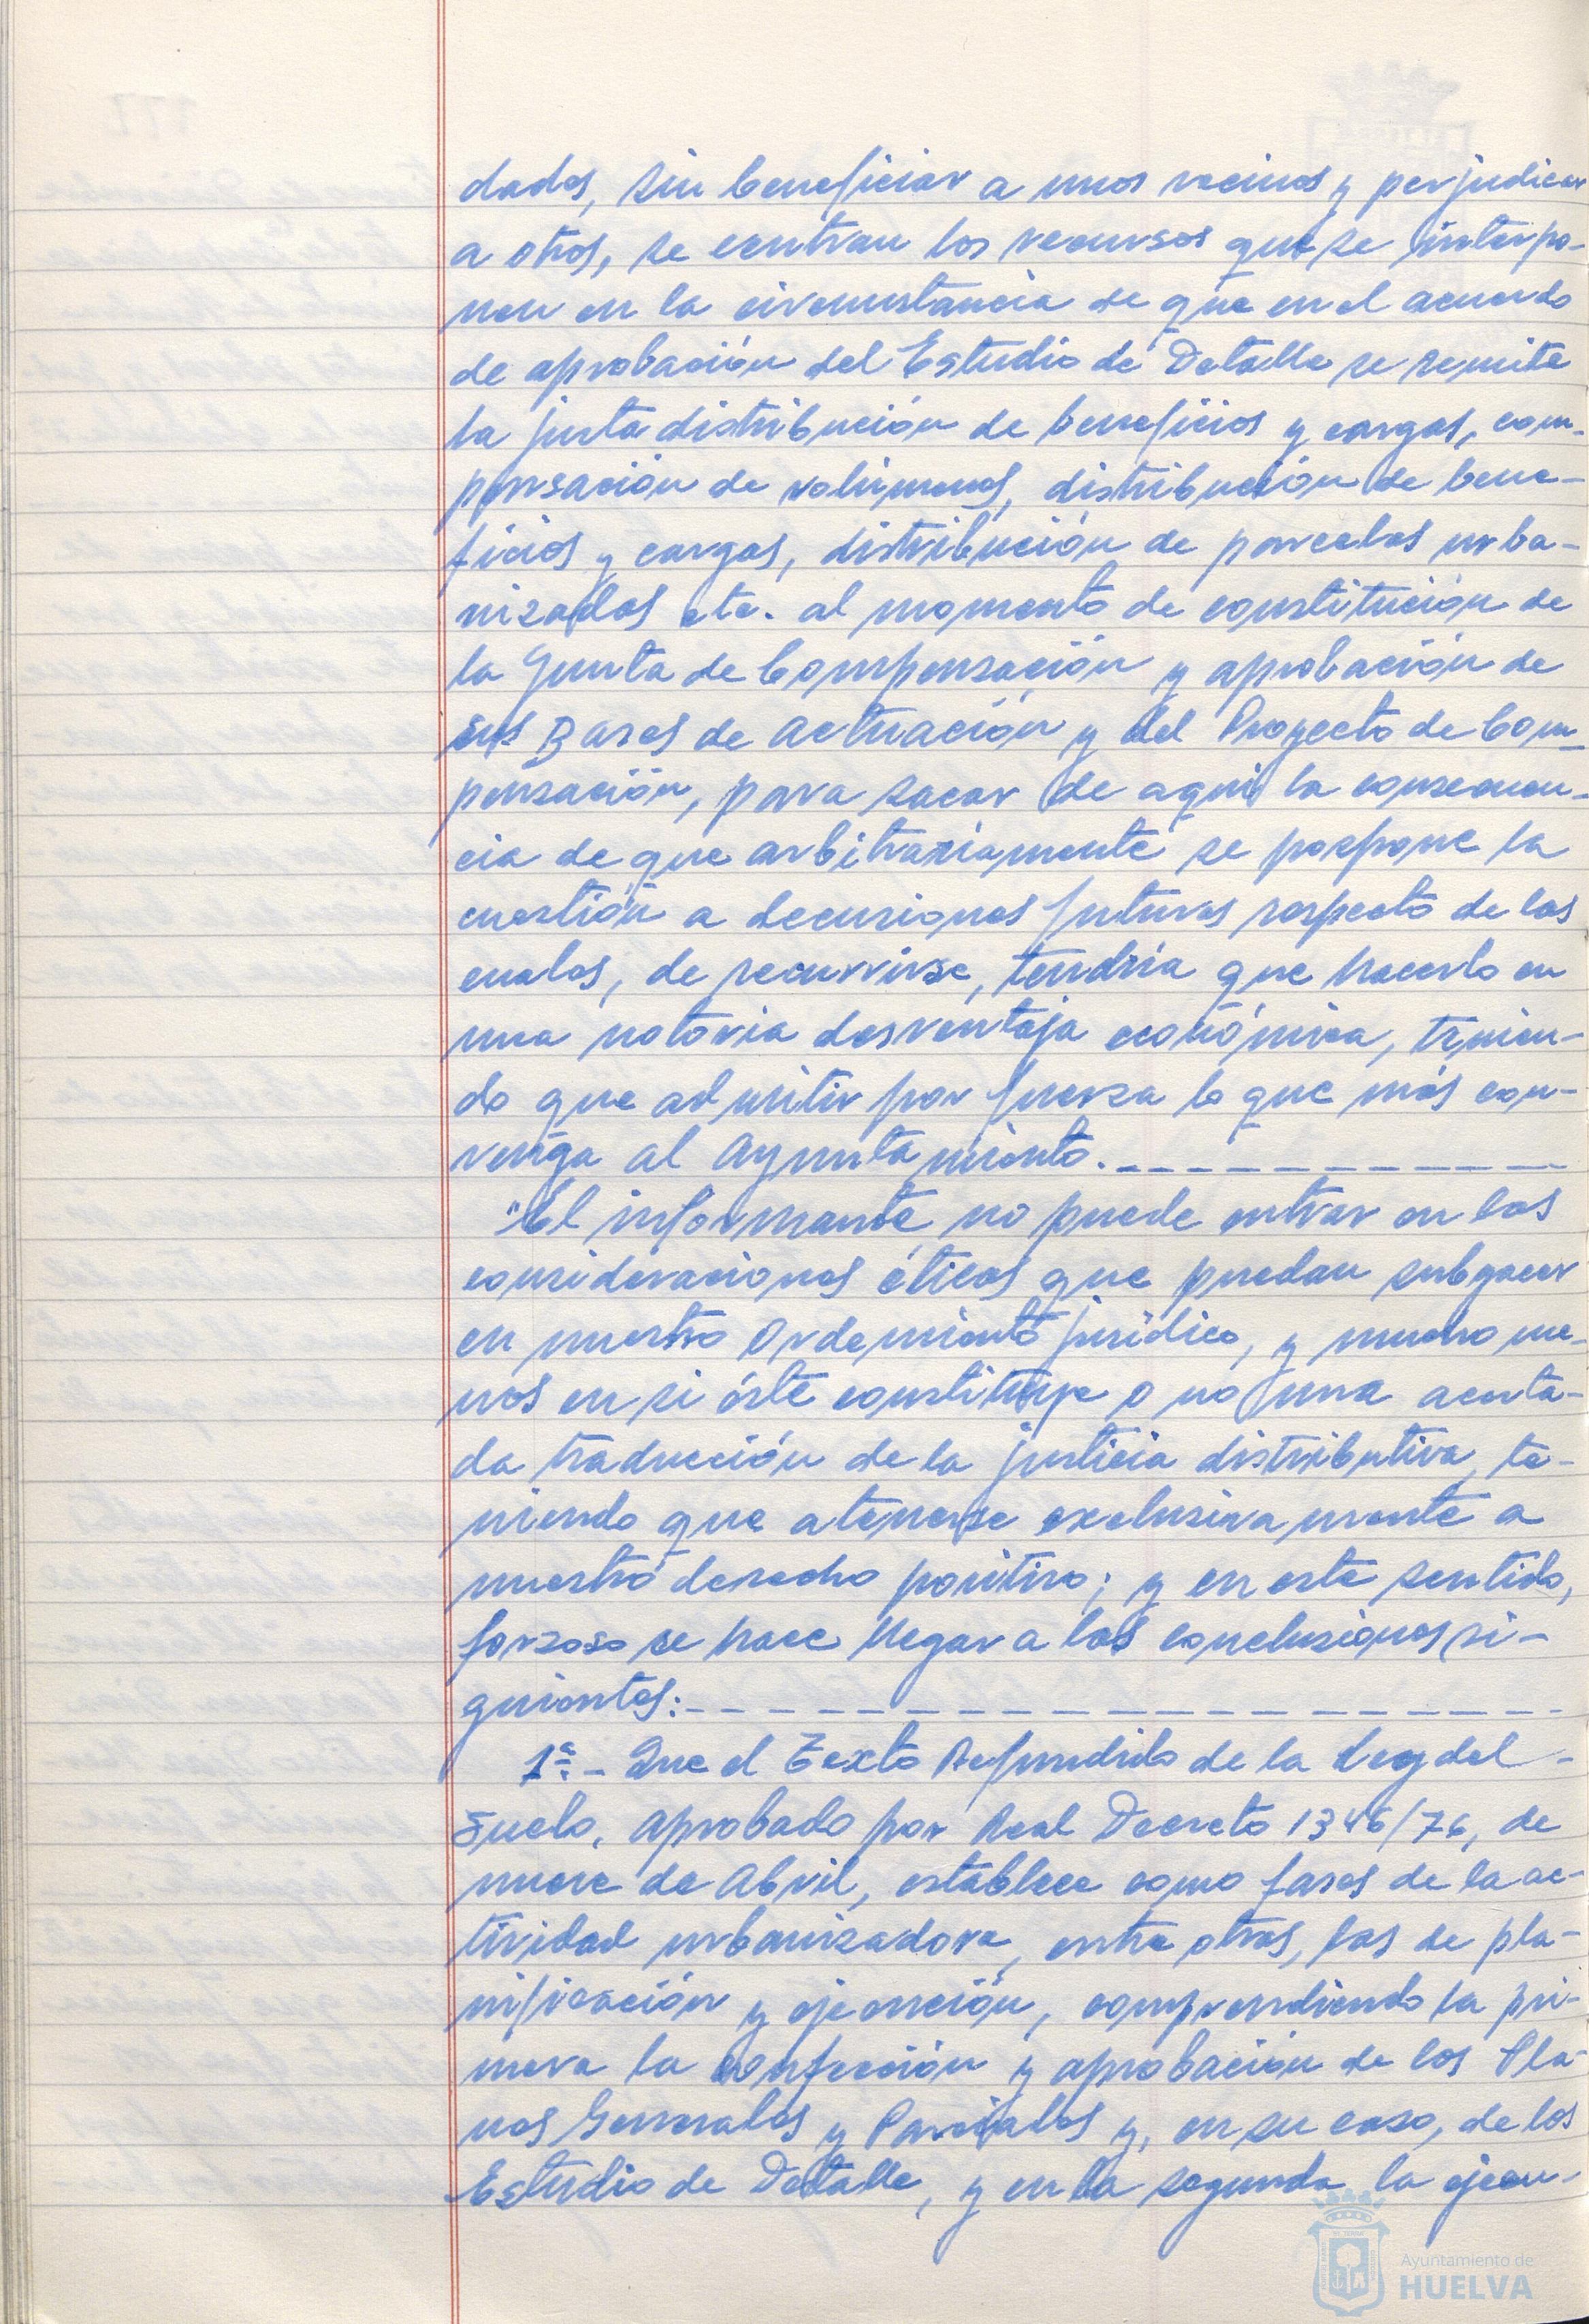 dades, sin beneficiar a unos vecinos y perjudicar
a otros, se centran los recursos que se interpo-
nen en la circunstancia de que en el acuerdo
de aprobación del Estudio de Detalle se remite
la justa distribución de beneficios y cargas, com-
pensación de volúmenes, distribución de bene-
ficios y cargas, distribución de parcelas urba-
nizadas etc. al momento de constitución de
la Junta de Compensación y aprobación de
sus Bases de Actuación y del Proyecto de Com-
pensación, para sacar de aquí la consecuen-
cia de que arbitrariamente se pospone la
cuestión a decisiones futuras respecto de las
cuales, de recurrirse, tendría que hacerlo en
una notoria desventaja económica, tenien-
do que admitir por fuerza lo que más con-
venga al Ayuntamiento.
"El informante no puede entrar en las
consideraciones éticas que puedan subyacer
en nuestro Ordemiento jurídico, y mucho me-
nos en si éste constituye o no una acerta-
da traducción de la justicia distributiva, te-
niendo que atenerse exclusivamente a
nuestro derecho positivo; y en este sentido,
forzoso se hace llegar a las conclusiones si-
guientes:
1ª.- Que el Texto Refundido de la Ley del
Suelo, aprobado por Real Decreto 1346/76, de
nueve de Abril, establece como fases de la ac-
tividad urbanizadora, entre otras, las de pla-
nificación y ejecución, comprendiendo la pri-
mera la confección y aprobación de los Pla-
nes Generales y Parciales y, en su caso, de los
Estudio de Detalle, y en la segunda la ejecu-
Ayuntamiento de
HUELVA